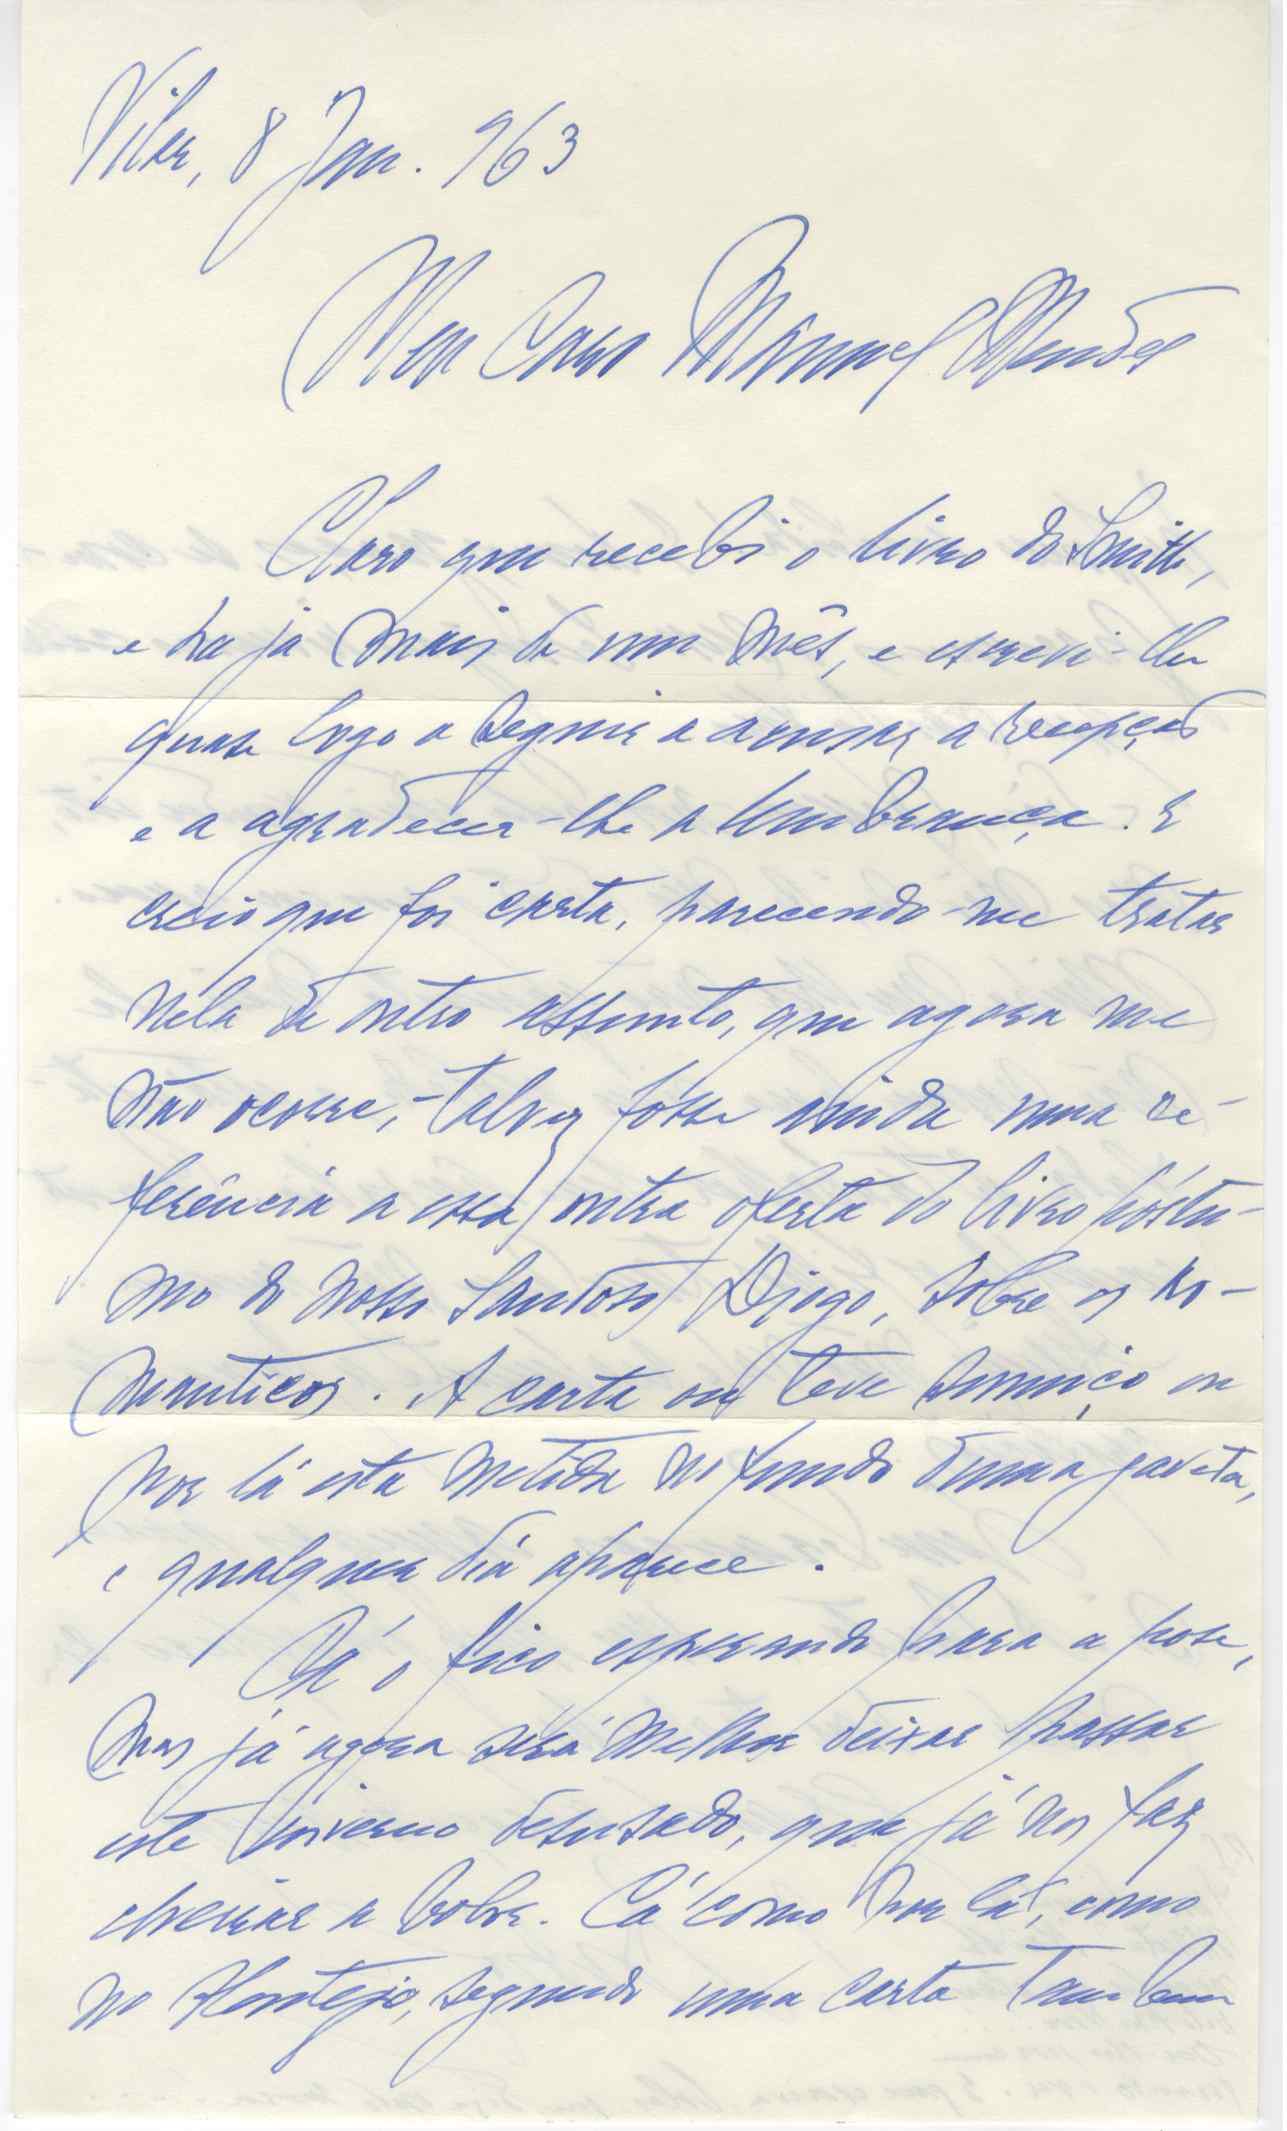 Vilar, 8 Jan. 963
Meu Caro Manuel Mendes
Claro que recebi o livro do Smith,
e ha já mais de um mês, e escrevi-lhe
quase logo a seguir a acusar a recepção
e a agradecer-lhe a lembrança. E
creio que foi carta, parecendo-me tratar
nela de outro assunto, que agora me
não ocorre, - talvez fôsse ainda uma re-
ferência a essa outra oferta do livro póstu-
mo do nosso Diogo, sobre os Ro-
manticos. A carta ou teve sumiço ou
por lá esta metida no fundo duma gaveta,
e qualquer dia aparece.
Cá o fico esperando para a pose,
mas já agora será melhor deixar passar
este inverno desusado, que já nos faz
cheirar a . Cá como por lá, como
no Alentejo, segundo uma carta tambem